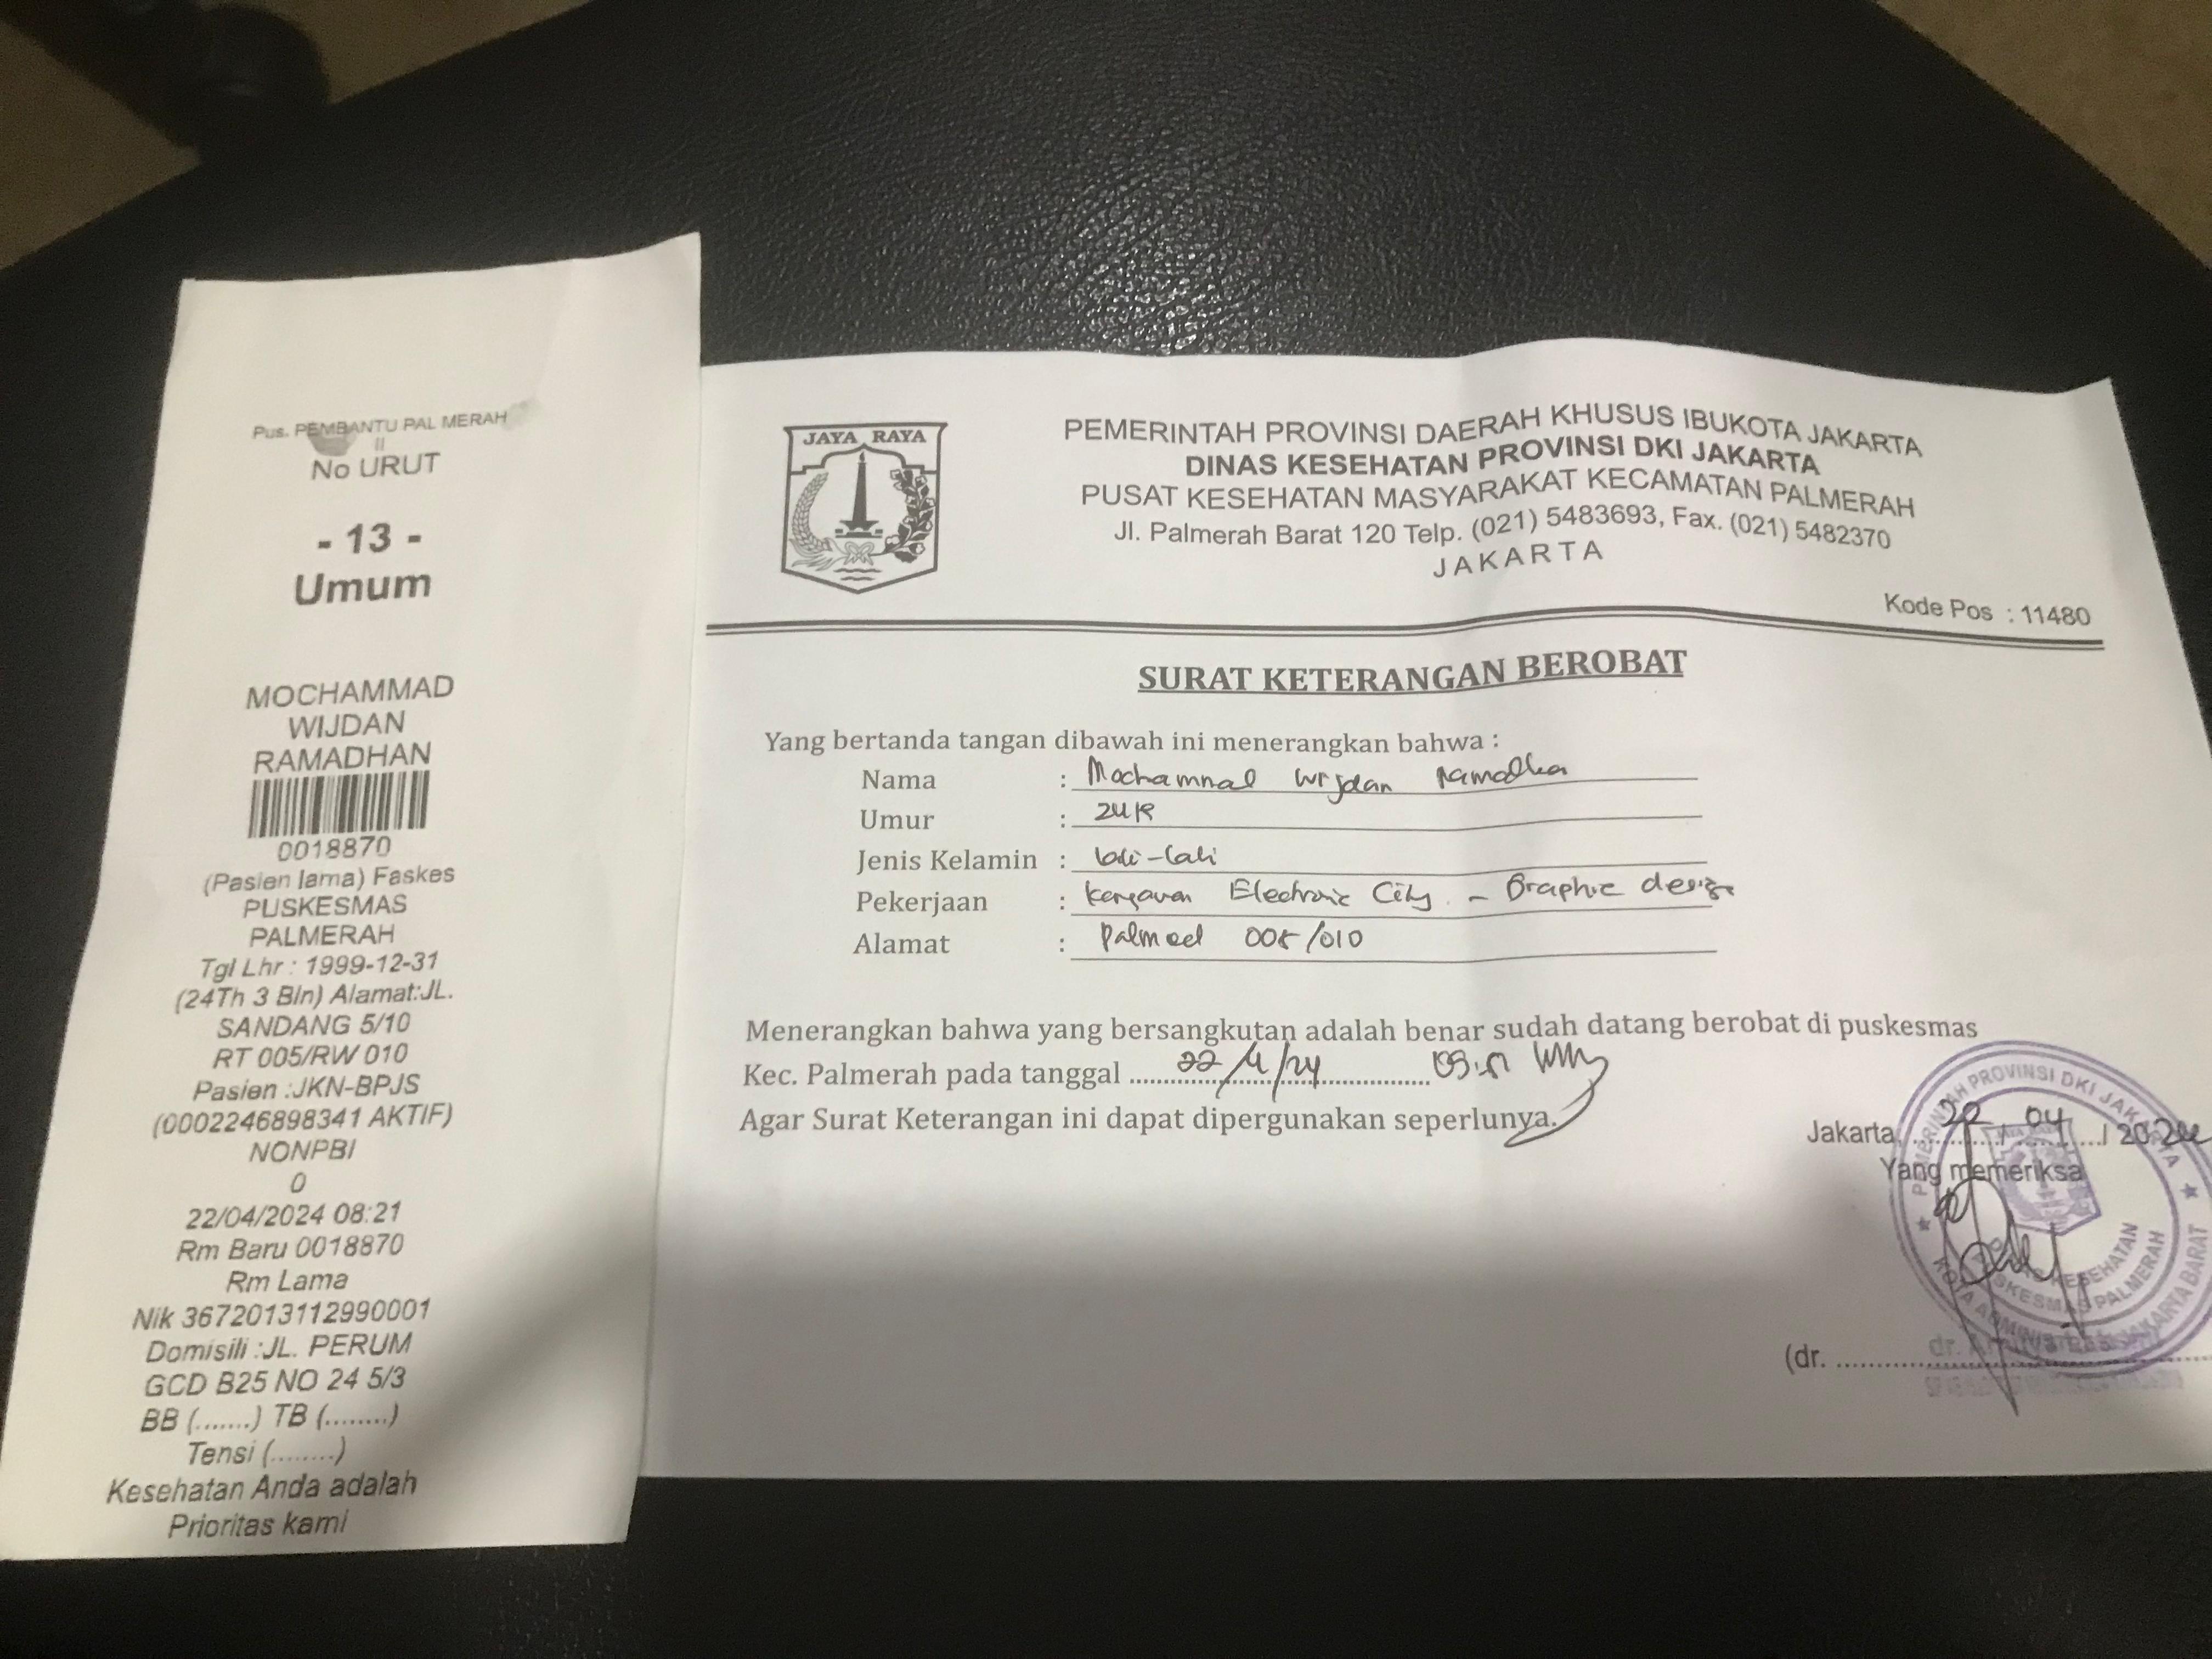 Pus. PEMBANTU PAL MERAH
II
No URUT
- 13 -
Umum
MOCHAMMAD
WIJDAN
RAMADHAN
0018870
(Pasien lama) Faskes
PUSKESMAS
PALMERAH
Tgl Lhr : 1999-12-31
(24Th 3 Bln) Alamat:JL.
SANDANG 5/10
RT 005/RW 010
Pasien :JKN-BPJS
(0002246898341 AKTIF)
NONPBI
0
22/04/2024 08:21
Rm Baru 0018870
Rm Lama
Nik 3672013112990001
Domisili :JL. PERUM
GCD B25 NO 24 5/3
BB (.......) TB (........)
Tensi (........)
Kesehatan Anda adalah
Prioritas kami
JAYA RAYA
PEMERINTAH PROVINSI DAERAH KHUSUS IBUKOTA JAKARTA
DINAS KESEHATAN PROVINSI DKI JAKARTA
PUSAT KESEHATAN MASYARAKAT KECAMATAN PALMERAH
Jl. Palmerah Barat 120 Telp. (021) 5483693, Fax. (021) 5482370
JAKARTA
Kode Pos : 11480
SURAT KETERANGAN BEROBAT
Yang bertanda tangan dibawah ini menerangkan bahwa :
Nama : Mochammad Wijdan Ramadhan
Umur :
Jenis Kelamin : laki-laki
Pekerjaan : Karyawan Electronic City - Graphic design
Alamat : 005/010
Menerangkan bahwa yang bersangkutan adalah benar sudah datang berobat di puskesmas
Kec. Palmerah pada tanggal 22/4/24
Agar Surat Keterangan ini dapat dipergunakan seperlunya.
Jakarta, 22 / 04 / 2024
Yang memeriksa
PEMERINTAH PROVINSI DKI JAKARTA
DINAS KESEHATAN
PUSKESMAS PALMERAH
KOTA ADMINISTRASI JAKARTA BARAT
(dr.